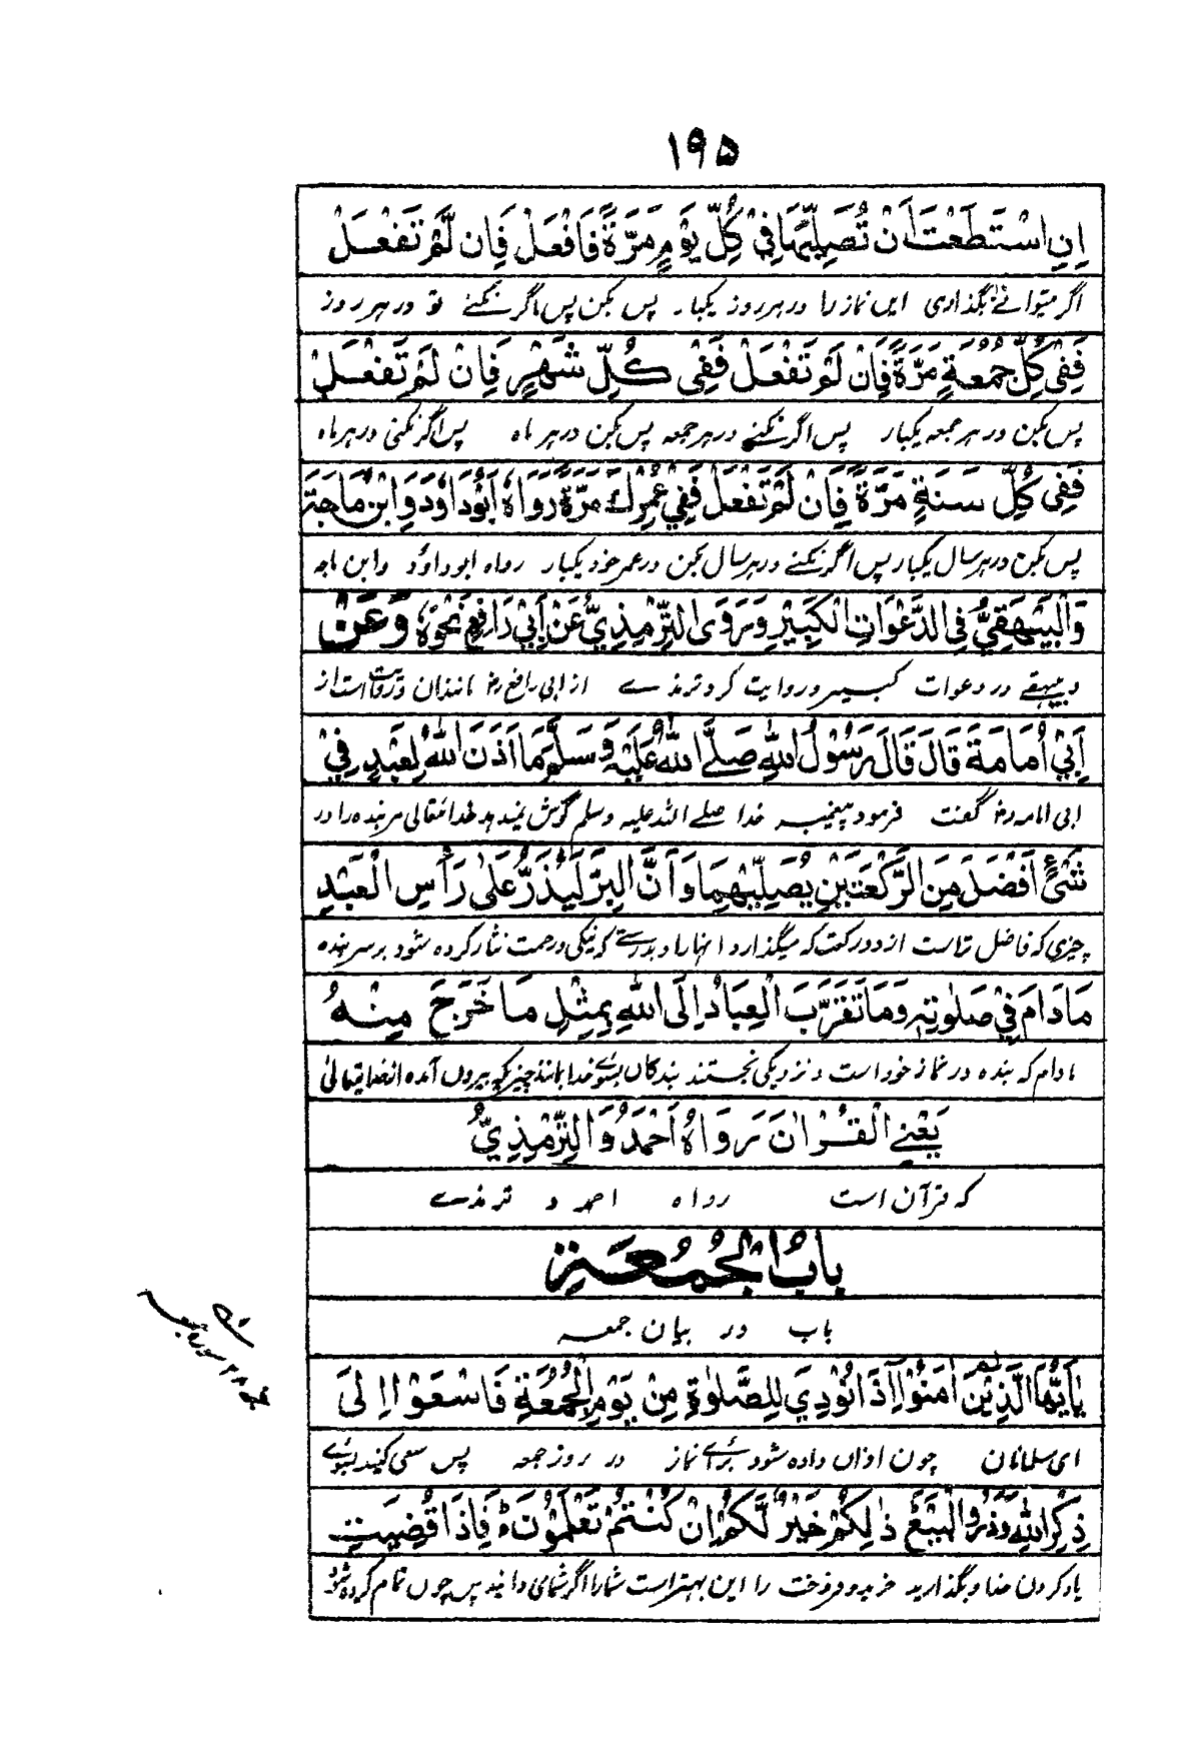 ۱۹۵
اِنِ اسْتَطَعْتَ اَنْ تُصَلِّيَهَا فِيْ كُلِّ يَوْمٍ مَرَّةً فَافْعَلْ فَاِن لَّمْ تَفْعَلْ
اگر میتوانے بگذاری ایں نماز را در ہر روز یکبار پس بکن پس اگر نکنے تو در ہر روز
فَفِىْ كُلِّ جُمُعَةٍ مَرَّةً فَاِنْ لَمْ تَفْعَلْ فَفِىْ كُلِّ شَهْرٍ فَاِنْ لَمْ تَفْعَلْ
پس بکن در ہر جمعہ یکبار پس اگر نکنے در ہر جمعہ پس بکن در ہر ماہ پس اگر نکنی در ہر ماہ
فَفِىْ كُلِّ سَنَةٍ مَرَّةً فَاِنْ لَمْ تَفْعَلْ فَفِيْ عُمُرِكَ مَرَّةً رَوَاهُ اَبُوْدَاوٗدَ وَابْنُ مَاجَةَ
پس بکن در ہر سال یکبار پس اگر نکنے در ہر سال بکن در عمر خود یکبار رواہ ابوداؤد وابن ماجہ
وَالْبَيْهَقِيُّ فِى الدَّعْوَاتِ الْكَبِيْرِ وَرَوَى التِّرْمِذِيُّ عَنْ اَبِيْ رَافِعٍ نَحْوَهُ وَعَنْ
و بیہقے در دعوات کبیر و روایت کرد ترمذے از ابی رافع رض مانند آن و روایت است از
اَبِيْ اُمَامَةَ قَالَ قَالَ رَسُوْلُ اللهِ صَلَّے اللهُ عَلَيْهِ وَسَلَّمَ مَا اَذِنَ اللهُ لِعَبْدٍ فِيْ
ابی امامہ رض گفت فرمود پیغمبر خدا صلے اللہ علیہ وسلم گوش نمیدہد خدا تعالی مر بندہ را در
شَىْءٍ اَفْضَلَ مِنَ الرَّكْعَتَيْنِ يُصَلِّيْهِمَا وَاَنَّ الْبِرَّ لَيُذَرُّ عَلٰى رَأْسِ الْعَبْدِ
چیزی کہ فاضل تر است از دو رکعت کہ میگذارد انہارا و بدرستے کہ نیکی و رحمت نثار کردہ شود بر سر بندہ
مَادَامَ فِيْ صَلٰوتِهٖ وَمَا تَقَرَّبَ الْعِبَادُ اِلَى اللهِ بِمِثْلِ مَا خَرَجَ مِنْهُ
مادام کہ بندہ در نماز خود است و نزدیکی نجستند بندگان بسوئے خدا مانند چیزیکہ بیروں آمدہ از خدا تعالیٰ
يَعْنِے الْقُرْاٰنَ رَوَاهُ اَحْمَدُ وَالتِّرْمِذِيُّ
کہ قرآن است رواہ احمد و ترمذے
بَابُ الْجُمُعَةِ
باب در بیان جمعہ
يٰاَيُّهَا الَّذِيْنَ اٰمَنُوْا اِذَا نُوْدِيَ لِلصَّلٰوةِ مِنْ يَوْمِ الْجُمُعَةِ فَاسْعَوْا اِلٰى
ای مسلمانان چون اذان داده شود برائے نماز در روز جمعہ پس سعی کنید بسوئے
ذِكْرِ اللهِ وَذَرُوا الْبَيْعَ ذٰلِكُمْ خَيْرٌ لَّكُمْ اِنْ كُنْتُمْ تَعْلَمُوْنَ فَاِذَا قُضِيَتِ
یاد کردن خدا و بگذارید خرید و فروخت را این بہتر است شمارا اگر شما می دانید پس چوں تمام کردہ شود